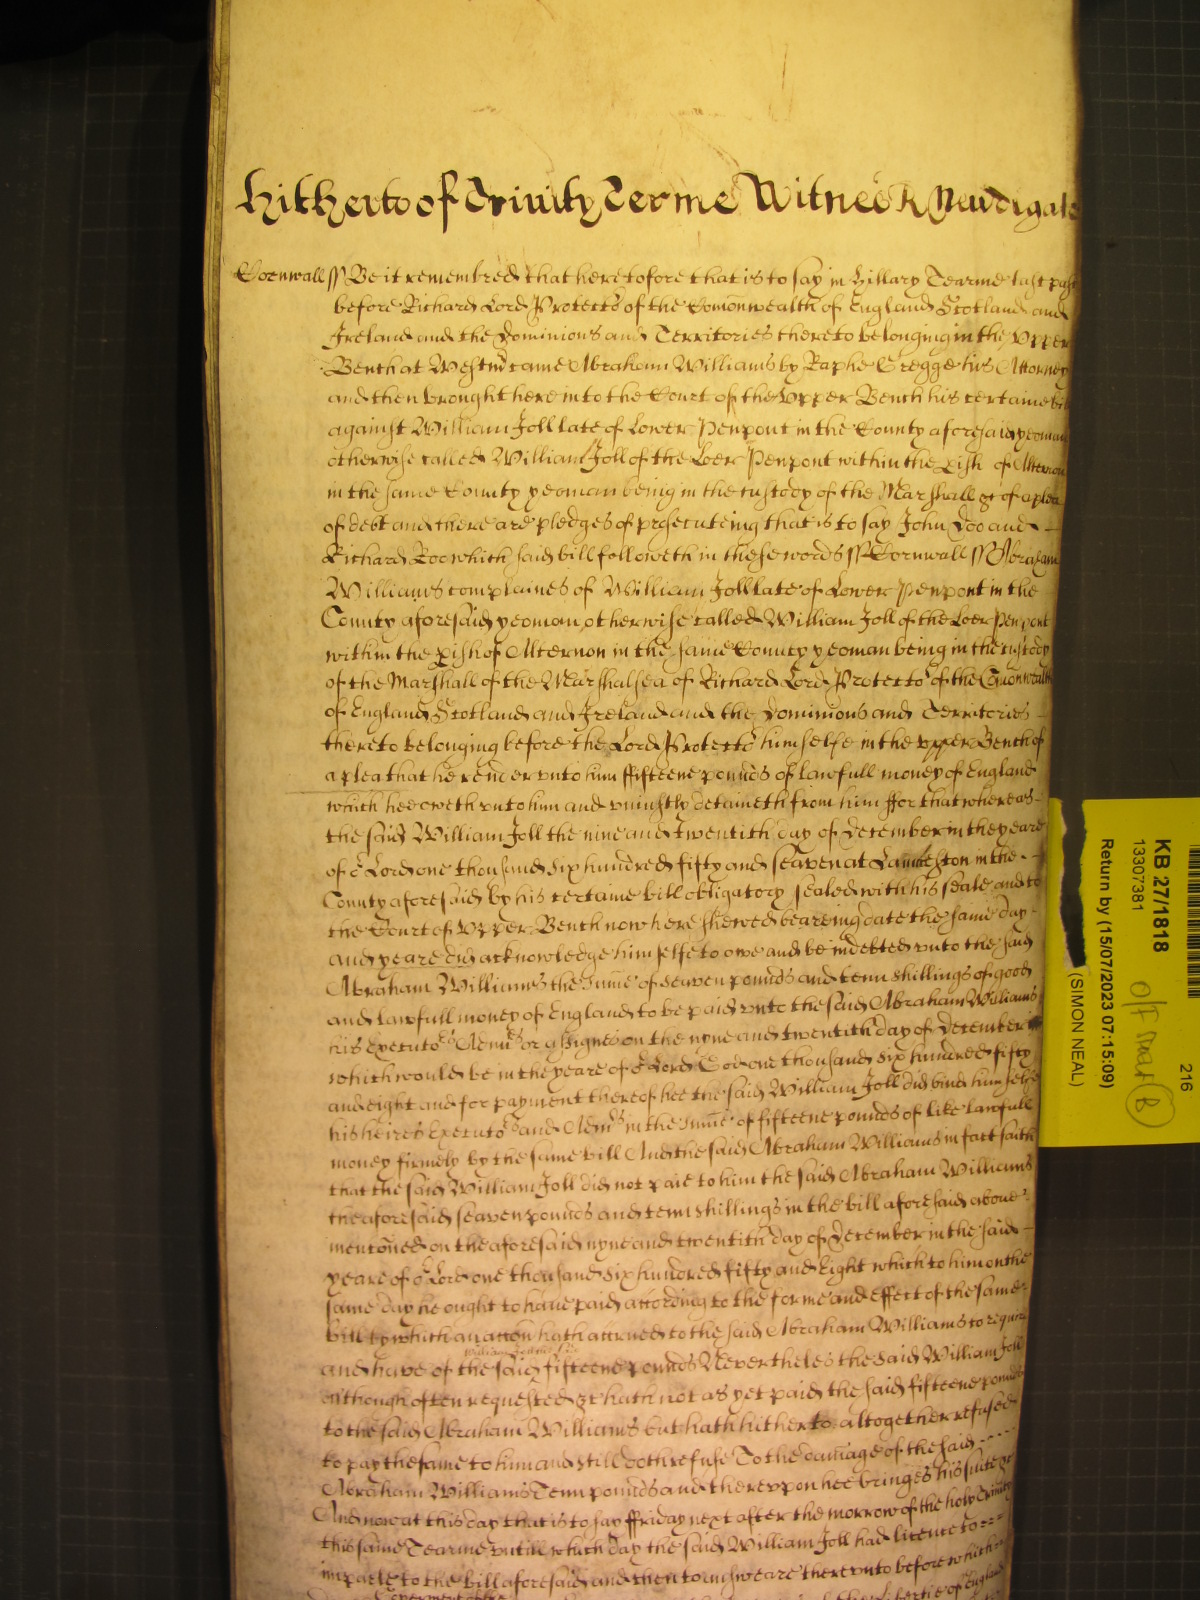 Hitherto of Trinity Terme Witnes R Newdigate
Cornwall ss Be it remembred that heretofore that is to say in Hillary Tearme last past
before Richard Lord Protector of the Comonwealth of England Scotland and
Ireland and the Dominions and Territories thereto belonging in the Vpper
Bench at Westmr came Abraham Williams by Raphe Gregge his Attorney
and then brought here into the Court of the Vpper Bench his certaine bill
against William Joll late of Lower Penpont in the County aforesaid yeoman
otherwise called William Joll of the Loer Penpont within the pish of Alternon
in the same County yeoman being in the custody of the Marshall &c of a plea
of debt and there are pledges of prosecuteing that is to say John Doo and
Richard Roo which said bill followeth in these words ss Cornwall ss Abraham
Williams complaines of William Joll late of Lower Penpont in the
County aforesaid yeoman otherwise called William Joll of the Loer Penpont
within the pish of Alternon in the same County yeoman being in the custody
of the Marshall of the Marshalsea of Richard Lord Protector of the Comonwealth
of England Scotland and Ireland and the Dominions and Territories
thereto belonging before the Lord Protector himselfe in the vpper Bench of
a plea that he render vnto him ffifteene pounds of lawfull money of England
which hee oweth vnto him and vniustly detaineth from him ffor that whereas
the said William Joll the nine and Twentith day of December in the yeare
of or Lord one thousand six hundred fifty and seaven at Launceston in the
County aforesaid by his certaine bill obligatory sealed with his seale and to
the Court of Vpper Bench now here shewed beareing date the same day
and yeare did acknowledge himselfe to owe and be indebted vnto the said
Abraham Williams the sume of seaven pounds and tenn shillings of good
and lawfull money of England to be paid vnto the said Abraham Williams
his executors Admrs or assignes on the nyne and twentith day of December
which would be in the yeare of or Lord God one thousand six hundred fifty
and eight and for payment thereof hee the said William Joll did bind himselfe
his heires Executors and Admrs in the sume of fifteene pounds of like lawfull
money firmely by the same bill And the said Abraham Williams in fact saith
that the said William Joll did not paie to him the said Abraham Williams
the aforesaid seaven pounds and tenn shillings in the bill aforesaid above
mentoned on the aforesaid nyne and twentith day of December in the said
yeare of or Lord one thousand six hundred fifty and Eight which to him on the
same day he ought to have paid according to the forme and effect of the same
bill by which an accon hath accrued to the said Abraham Williams to require
and have of the said William Joll the said fifteene pounds Nevertheles the said William Joll
although often requested &c hath not as yet paid the said fifteene pounds
to the said Abraham Williams but hath hitherto altogether refused
to pay the same to him and still doth refuse To the damage of the said
Abraham Williams Tenn pounds and therevpon hee bringes his suite &c
And now at this day that is to say ffriday next after the morrow of the holy Trinity
this same Tearme vntill which day the said William Joll had licence to
imparle to the bill aforesaid and then to answeare therevnto before which
KB 27/1818
13307381
Return by (15/07/2023 07:15:09)
(SIMON NEAL)
216